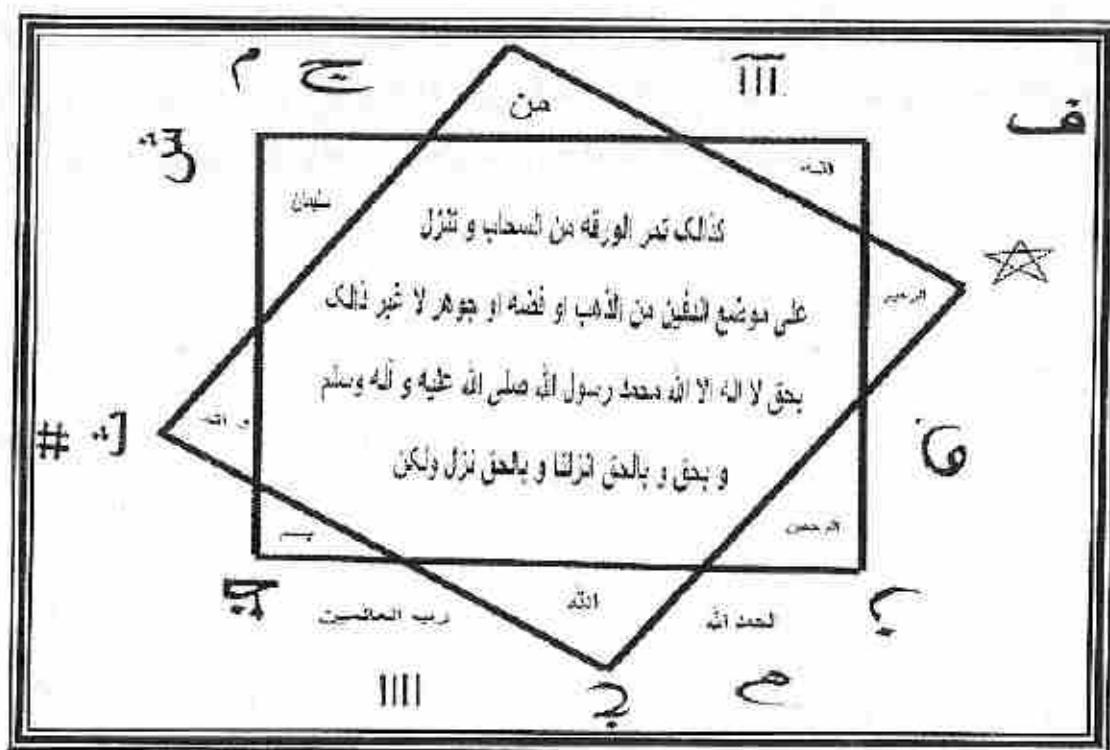 م ج
ف
من
سليمان
كذالك تمر الورقه من السحاب و تنزل
على موضع الدفين من الذهب او فضه او جوهر لا غير ذالك
بحق لا اله الا الله محمد رسول الله صلى الله عليه و آله وسلم
و بحق و بالحق انزلنا و بالحق نزل ولكن
#
الرحمن
بسم
الله
الحمد الله
رب العالمين